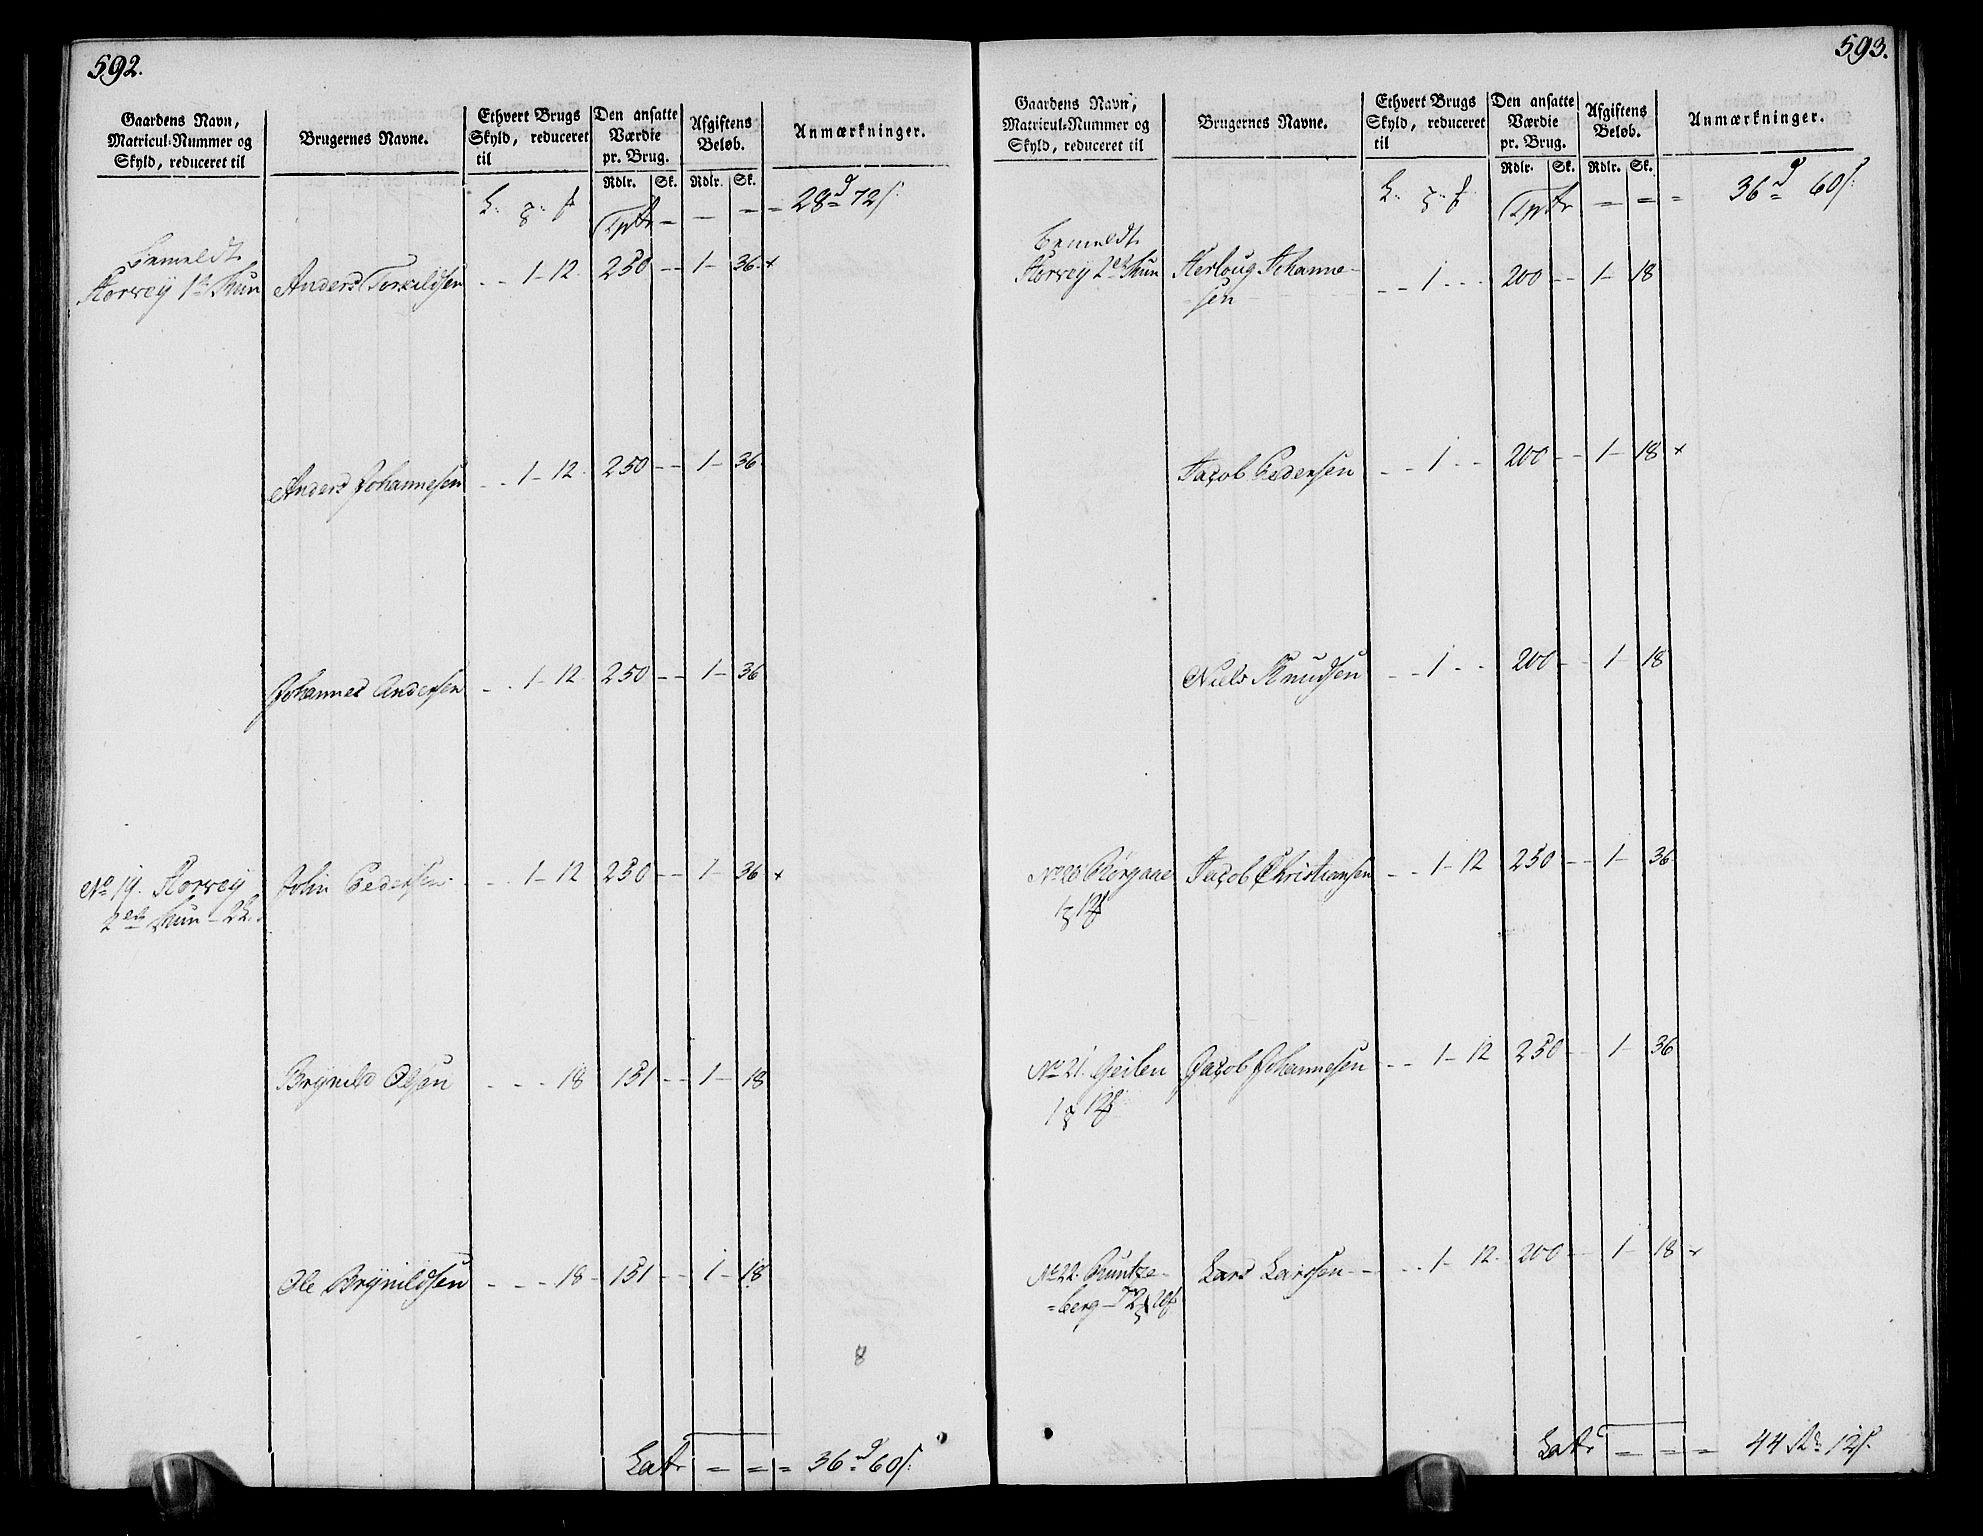 592.
Gaardens Navn, Matricul-Nummer og Skyld, reduceret til
Brugernes Navne.
Ethvert Brugs Skyld, reduceret til
Den ansatte Værdie pr. Brug.
Afgiftens Beløb.
Anmærkninger.
Rdlr. Sk. Rdlr. Sk.
Tptr - - - = 28 d 72 s.
bemeldt
Horvey 1ste Thun Anders Torkildsen - - 1 - 12. 250 - - 1 - 36 +
Anders Johannesen - - 1 - 12. 250 - - 1 - 36.
Johannes Andersen - - 1 - 12. 250 - - 1 - 36
No 19. Horvey John Pedersen - - 1 - 12 250 - - 1 - 36 +
2den Thun - 2 L.
Brynild Olsen - - - 18 151 - - 1 - 18
Ole Brynildsen - - - 18 - 151 - - 1 - 18
8
Latr = = = 36 d 60 s.
593.
Gaardens Navn, Matricul-Nummer og Skyld, reduceret til
Brugernes Navne.
Ethvert Brugs Skyld, reduceret til
Den ansatte Værdie pr. Brug.
Afgiftens Beløb.
Anmærkninger.
Rdlr. Sk. Rdlr. Sk.
Tptr = = = 36 d 60 s.
bemeldt
Horvey 2den Thun Herloug Johanne-
sen - - 1 - - - 200 - - 1 - 18
Jacob Pedersen - - 1 - - 200 - - 1 - 18 +
Niels Knudsen - - 1 - - 200 - - 1 - 18
No 20 Rörgane Jacob Christiansen - - 1 - 12 250 - - 1 - 36
No 21. Geilen Jacob Johannesen - - 1 - 12 250 - - 1 - 36
No 22. Runtze- Lars Larssen - - - - 1 - 12 - 200 - - 1 - 18 +
=berg -
Latr = = = 44 Rd 12 s.